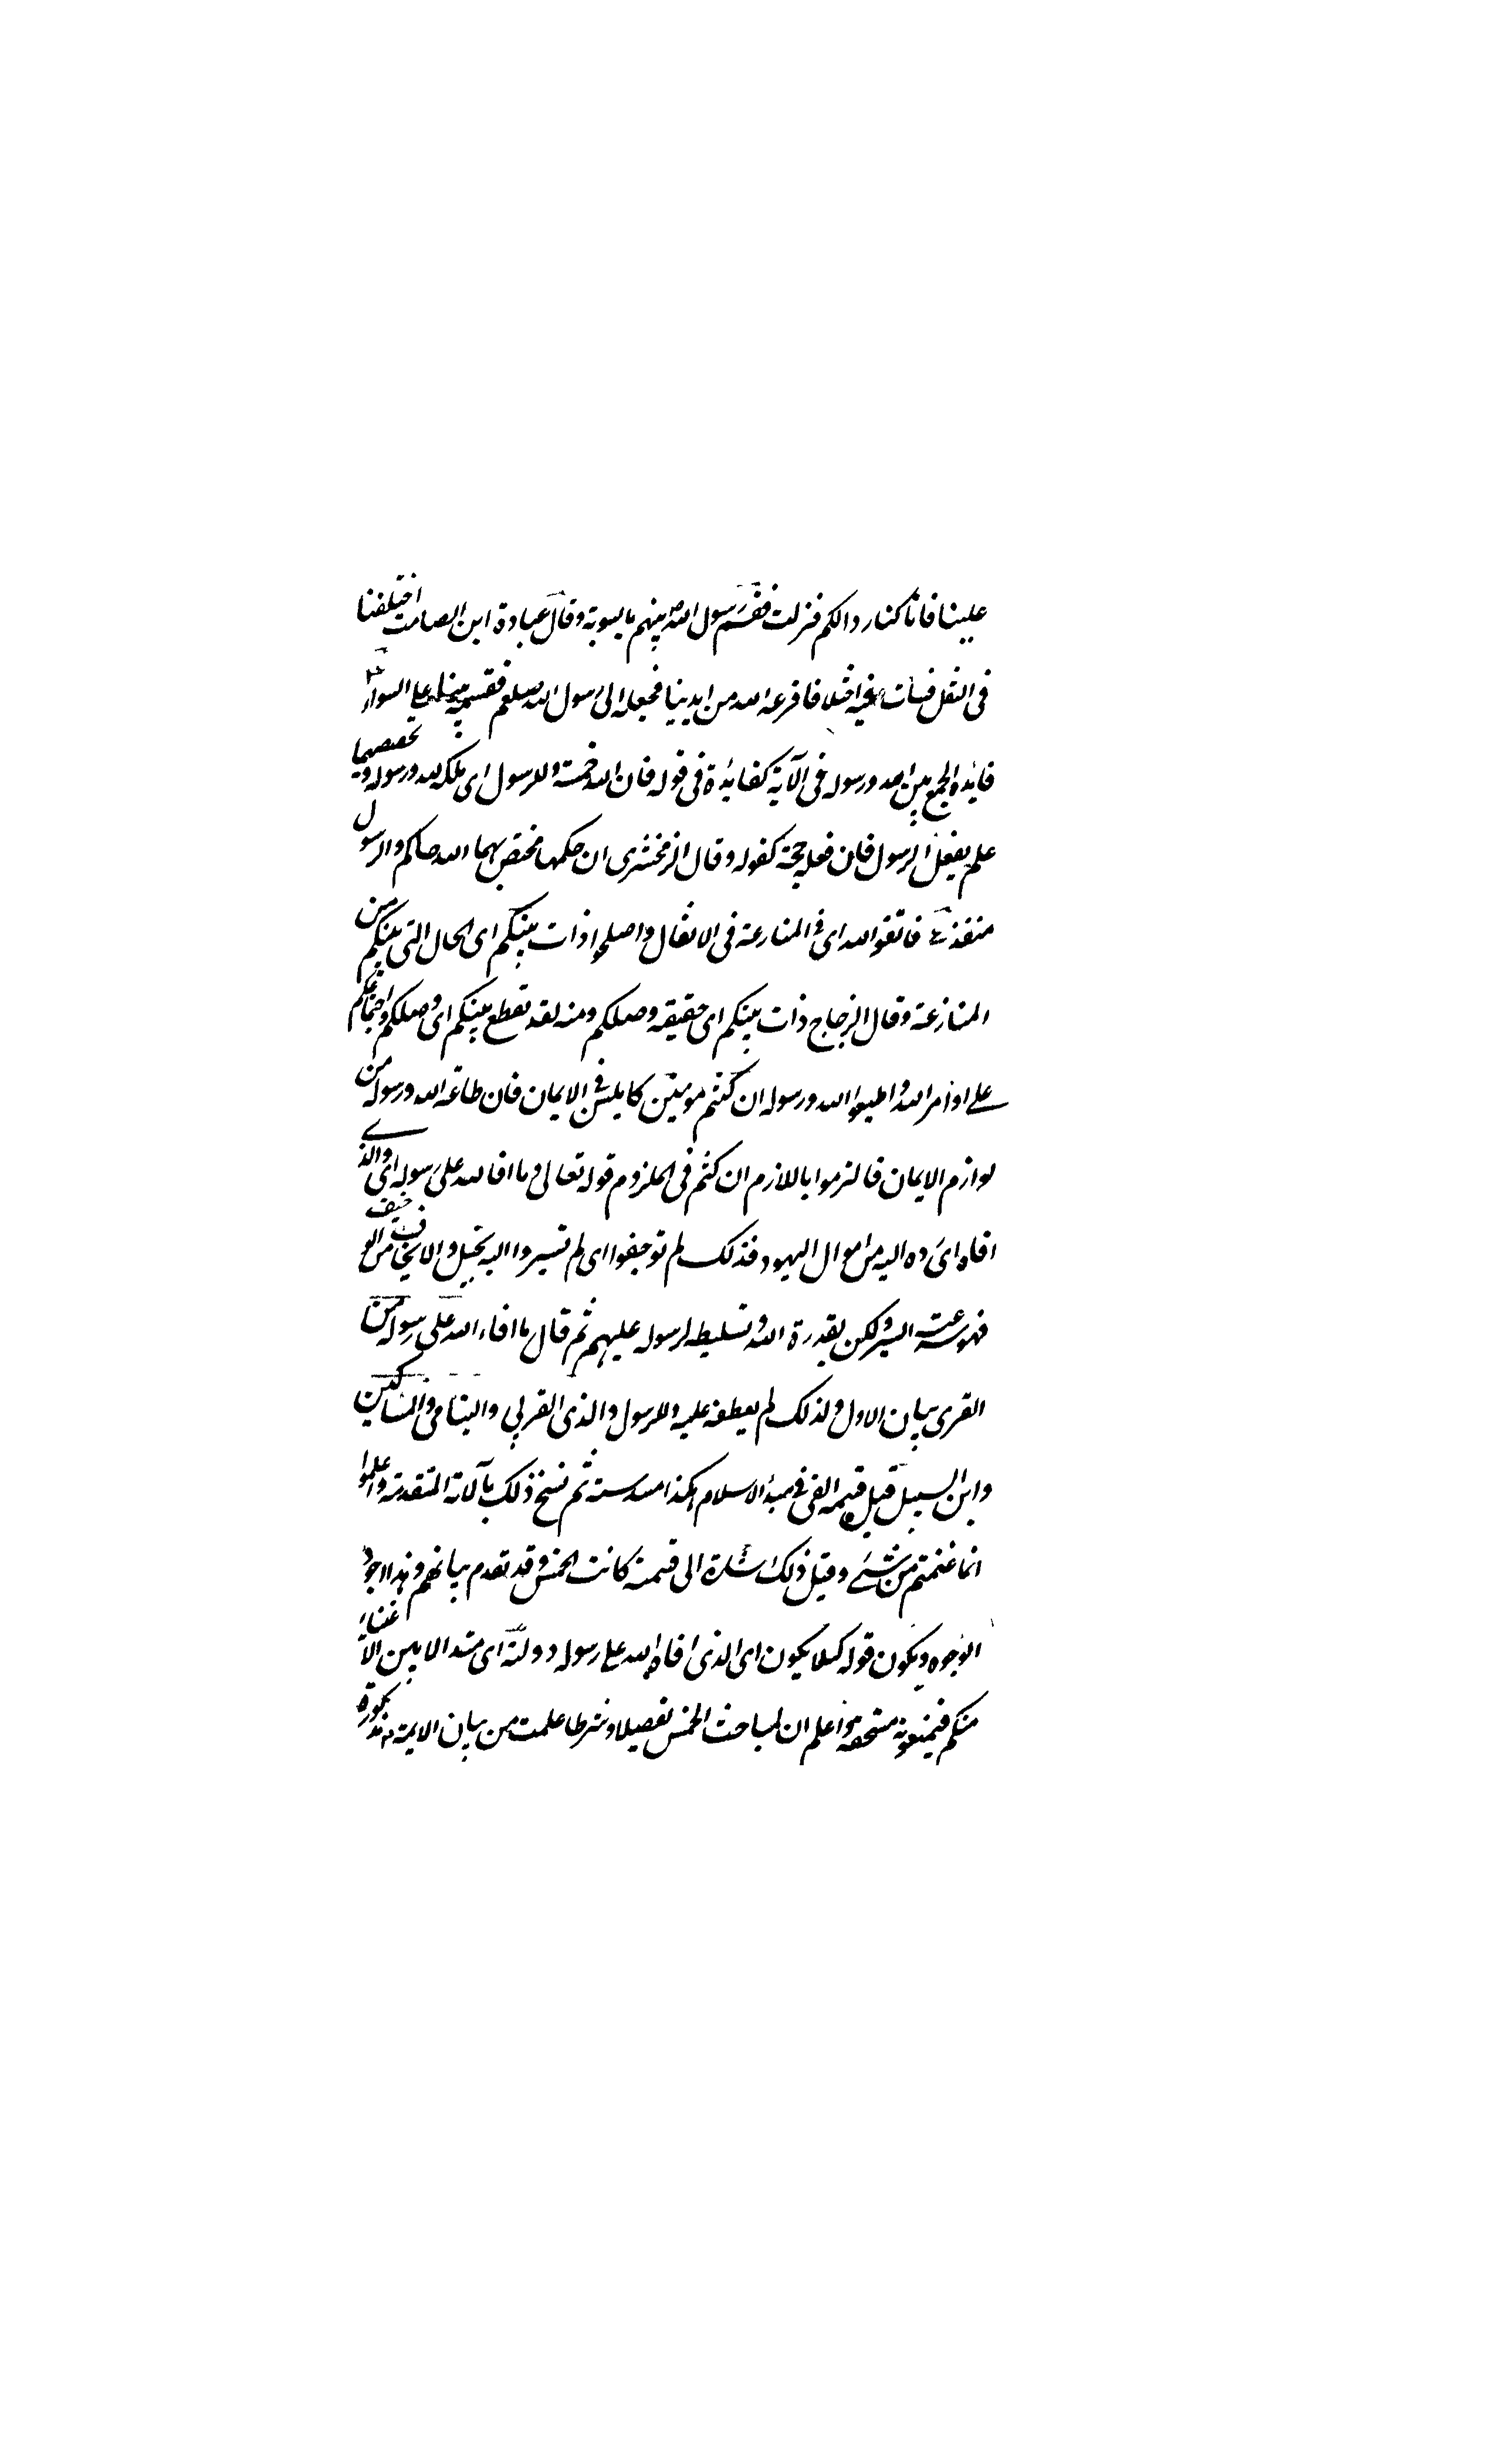 علينا فانا كنا ردا لكم فنزلت فقسم رسول الله بينهم بالسوية وقال عبادة ابن الصامت اختلفنا
فى النفل فسأت فيه اخلاقنا فزعه الله من ايدينا فجعله الى رسول الله صلعم فقسمه بيننا على السواء
فايدة الجمع بين الله ورسوله فى الآية كفايدة فى قوله فان لله خمسه وللرسول اى ملك لله ورسوله وتخصيصهما
علم بفعل الرسول فان فعله حجة كقوله وقال الزمخشرى ان حكمها مختص بهما الله حاكم والرسول
منفذ فاتقوا الله اى فى المنازعة فى الانفال واصلحوا ذات بينكم اى الحال التى بينكم من
المنازعة وقال الزجاج ذات بينكم اى حقيقة وصلكم ومنه لقد تقطع بينكم اى وصلكم واجتماعكم
على اوامر الله واطيعوا الله ورسوله ان كنتم مومنين كاملين فى الايمان فان طاعة الله ورسوله من
لوازم الايمان فالتزموا باللازم ان كنتم فى الملزوم قوله تعالى وما افا لله على رسوله اى والذى
افاه اى رده اليه من اموال اليهود فذلك لم توجفوا اى لم تسيروا اليه بخيل والايجاف من الوجيف
فهو سرعت السير ولكن بقدرة الله وتسليطه لرسوله عليهم ثم قال ما افاء الله على رسوله من
القرى بيان الاول ولذلك لم يعطف عليه وللرسول والذى القربى واليتامى والمساكين
وابن السبيل قيل قسمة الفى فى مبدأ الاسلام هكذا مسدسته ثم نسخ ذلك بآلاية المتقدمة واعلموا
انما غنمتم من شئ وقيل ذلك اشارة الى قسمة كانت الخمس وقد تقدم بيانهم وهذا اجود
الوجوه ويكون قوله كيلا يكون اى الذى افاه الله على رسوله دولة اى متدالا بين الاغنياء
منكم فيمنعونه مستحقه واعلم ان لمباحث الخمس تفصيلا وشرطا علمت من بيان الايمة مذكورة